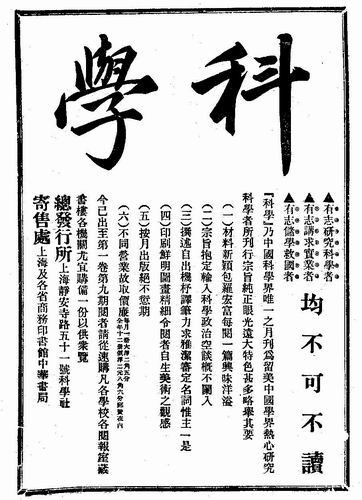 科學
▲有志研究科學者
▲有志講求實業者
▲有志儲學救國者
均不可不讀
『科學』乃中國科學界唯一之月刊爲留美中國學界熱心研究
科學者所刊行宗旨純正眼光遠大特色甚多略舉其要
(一)材料新穎包羅宏富每閱一篇興味洋溢
(二)宗旨抱定輸入科學政治空談槪不闌入
(三)撰述自出機杼譯筆力求雅潔審定名詞惟主一是
(四)印刷鮮明圖畫精細令閱者自生美術之觀感
(五)按月出版絕不愆期
(六)不同營業故取價廉
今已出至第一卷第九期閱者請從速購凡各學校各閱報室藏
書樓各機關尤宜購備一份以供衆覽
總發行所上海靜安寺路五十一號科學社
寄售處上海及各省商務印書館中華書局